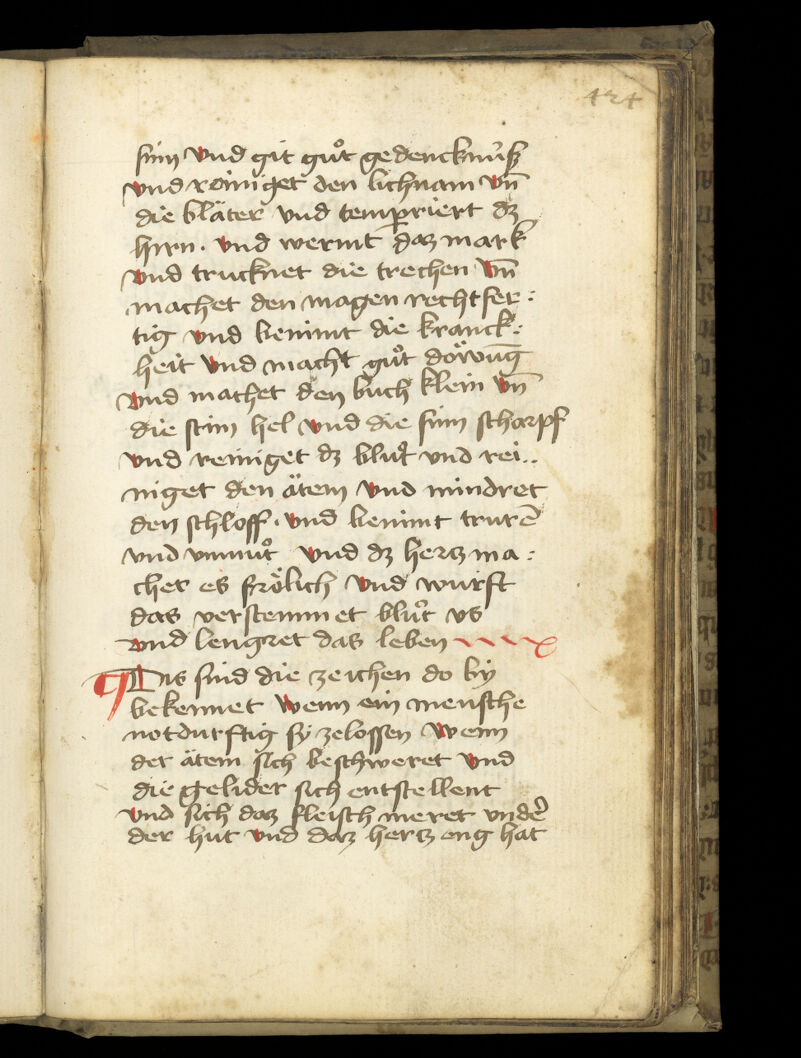 424
sinn vnd git guͦt gedencknuͤß
vnd reiniget den lichnam vn̄
die bläter vnd temperiert dz
hirn . vnd wermt daz mark
vnd trucknet die trechen vn̄
machet den magen rechtfer:
tig vnd benimt die kranck:
heit vnd macht guͦt döwūg
vnd machet den buch klein vn̄
die stim hel vnd die sinn scharpf
vnd reiniget dz bluͦt vnd rei..
niget den ätem vnd mindret
den schloff . vnd benimt trurē
vnd vnmuͦt vnd dz hertz ma:
chet es frölich vnd wurft
das verstemmet bluͦt vs
vnd lengret das leben
¶ Dis sind die zeichen do by
bekennet wenn ein mensche
notdurftig sy zelossen wenn
der ätem sich beschweret vnd
die gelider sich entstellent
vnd sich daz fleisch meret vnder
der hut vnd daz hertz eng hat